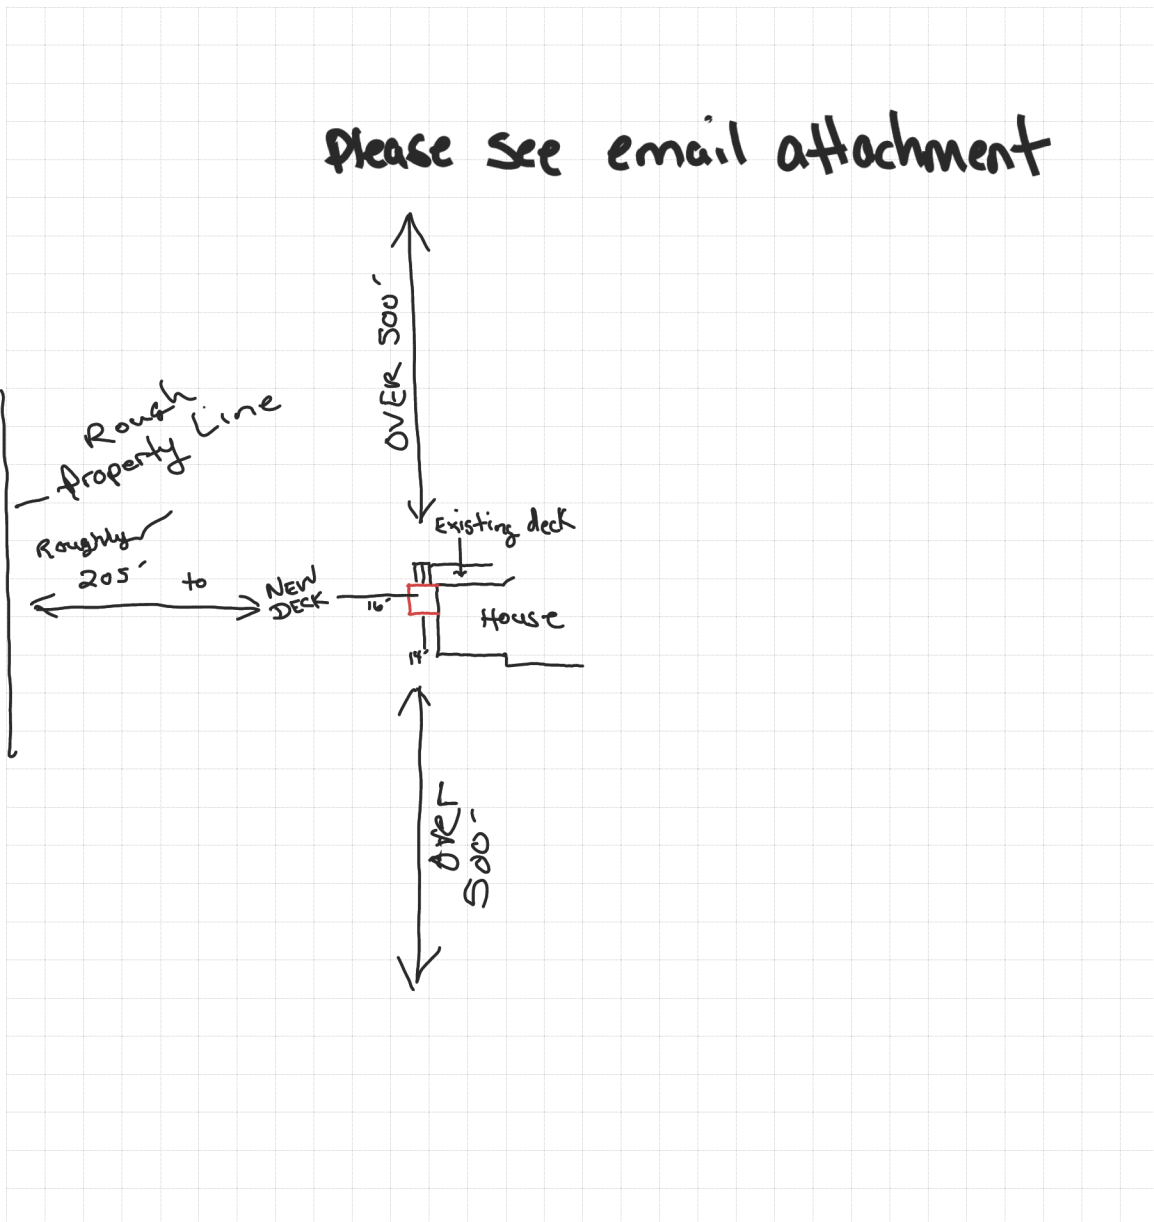 please see email attachment
OVER 500'
Rough
Property Line
Roughly
205' to
Existing deck
NEW
DECK
16'
House
14'
OVER
500'